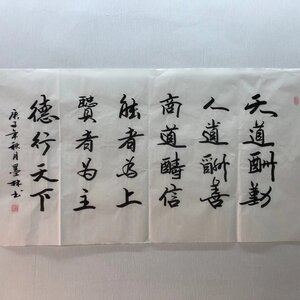 天道酬勤
人道酬善
商道酬信
能者为上
賢者为主
德行天下
庚子年秋月墨林书